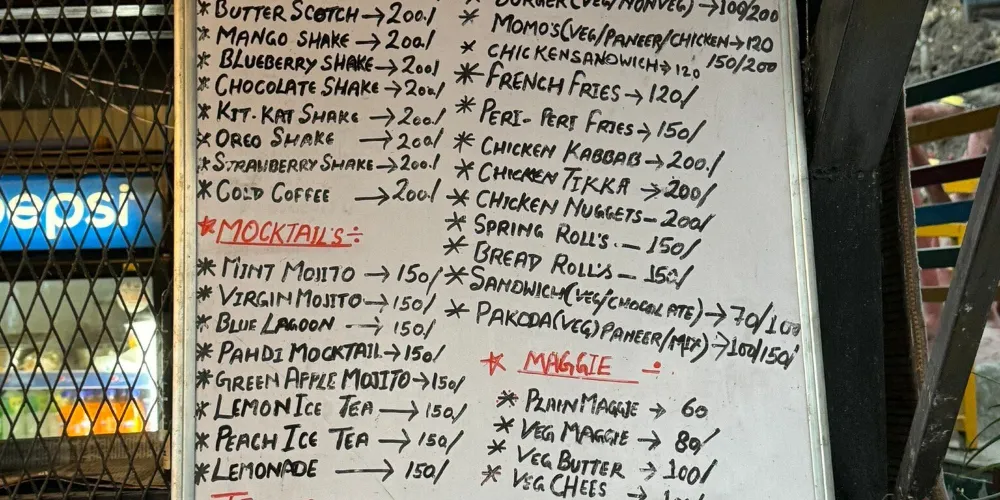 pepsi
* BUTTER SCOTCH → 200/
* MANGO SHAKE → 200/
* BLUEBERRY SHAKE → 200/
* CHOCOLATE SHAKE → 200/
* KIT-KAT SHAKE → 200/
* OREO SHAKE → 200/
* STRAWBERRY SHAKE → 200/
* COLD COFFEE → 200/
* MOCKTAIL'S ÷
* MINT MOJITO → 150/
* VIRGIN MOJITO → 150/
* BLUE LAGOON → 150/
* PAHDI MOCKTAIL → 150/
* GREEN APPLE MOJITO → 150/
* LEMON ICE TEA → 150/
* PEACH ICE TEA → 150/
* LEMONADE → 150/
BURGER (VEG/NONVEG) → 100/200
MOMO'S (VEG/PANEER/CHICKEN → 120
150/200
* CHICKEN SANDWICH → 120
* FRENCH FRIES → 120/
* PERI-PERI FRIES → 150/
* CHICKEN KABBAB → 200/
* CHICKEN TIKKA → 200/
* CHICKEN NUGGETS - 200/
* SPRING ROLL'S - 150/
* BREAD ROLL'S - 150/
* SANDWICH (VEG/CHOCOLATE) → 70/100
* PAKODA (VEG) PANEER/MIX) → 100/150/
* MAGGIE ÷
* PLAIN MAGGIE → 60
* VEG MAGGIE → 80/
* VEG BUTTER → 100/
* VEG CHEES →